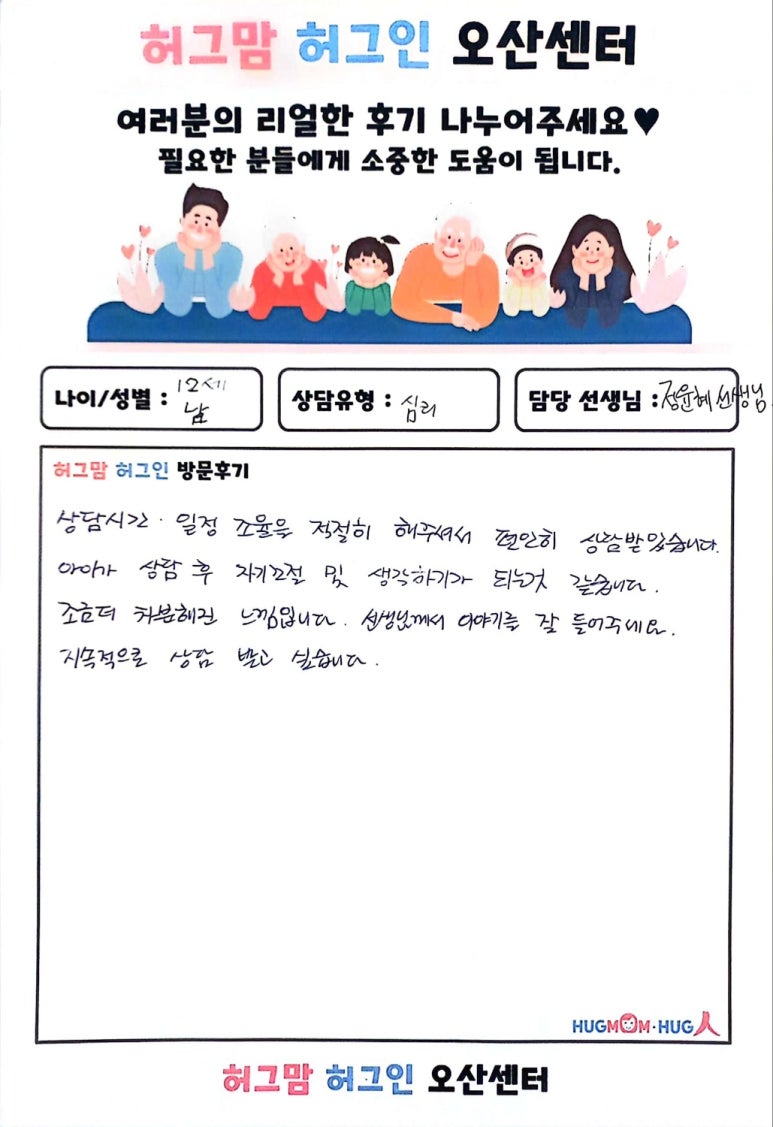 허그맘 허그인 오산센터
여러분의 리얼한 후기 나누어주세요♥
필요한 분들에게 소중한 도움이 됩니다.
나이/성별 : 12세 남
상담유형 : 심리
담당 선생님 : 정윤혜 선생님
허그맘 허그인 방문후기
상담시간 · 일정 조율을 적절히 해주셔서 편안히 상담받았습니다.
아이가 상담 후 자기조절 및 생각하기가 되는것 같습니다.
조금더 차분해진 느낌입니다. 선생님께서 이야기를 잘 들어주세요.
지속적으로 상담 받고 싶습니다.
HUGMOM·HUG人
허그맘 허그인 오산센터